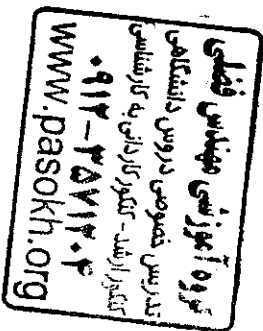 گروه آموزشی مهندس فضلی
تدریس خصوصی دروس دانشگاهی
کنکور ارشد - کنکور کاردانی به کارشناسی
۰۹۱۲-۳۵۷۱۳۰۴
www.pasokh.org